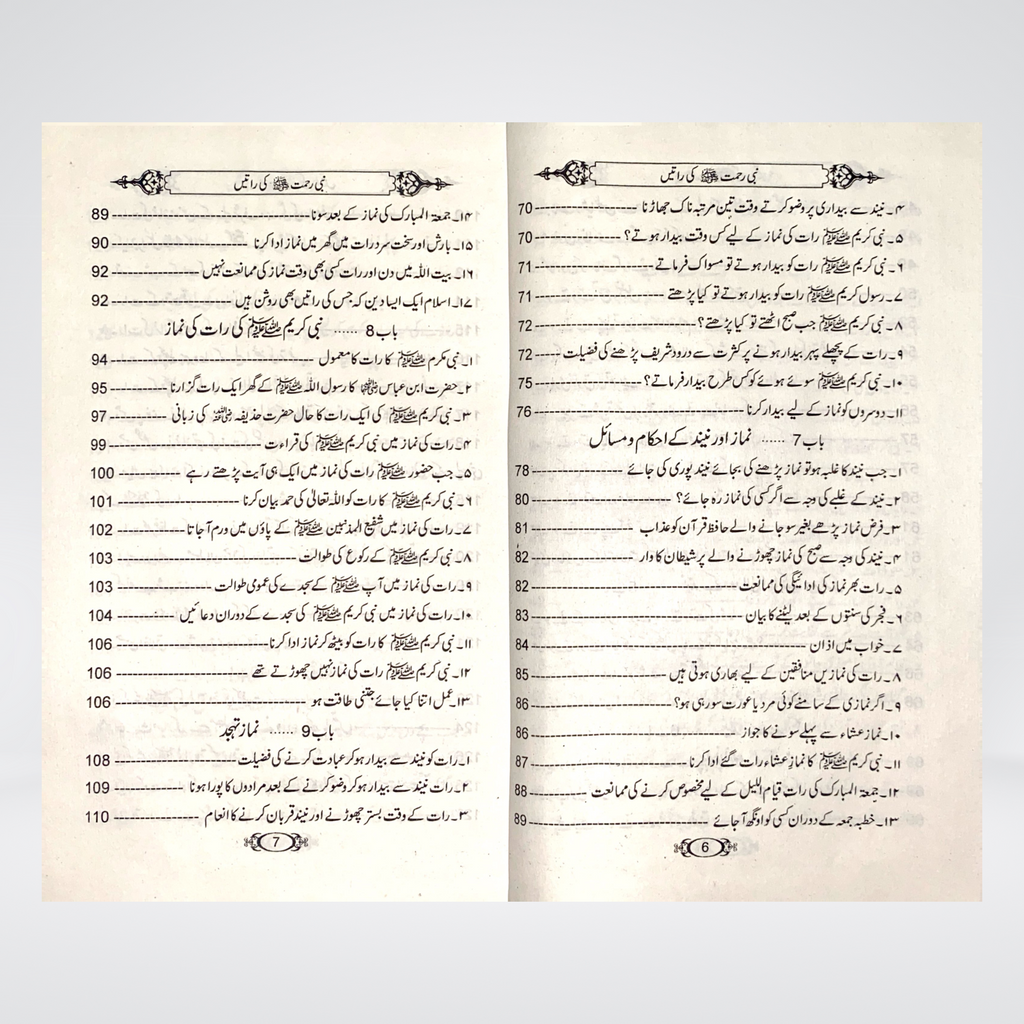 نبی رحمت ﷺ کی راتیں
۴۔ نیند سے بیداری پر وضو کرتے وقت تین مرتبہ ناک جھاڑنا ---------- 70
۵۔ نبی کریم ﷺ رات کی نماز کے لیے کس وقت بیدار ہوتے؟ ---------- 70
۶۔ نبی کریم ﷺ رات کو بیدار ہوتے تو مسواک فرماتے ---------- 71
۷۔ رسول کریم ﷺ رات کو بیدار ہوتے تو کیا پڑھتے ---------- 71
۸۔ نبی کریم ﷺ جب صبح اٹھتے تو کیا پڑھتے؟ ---------- 72
۹۔ رات کے پچھلے پہر بیدار ہونے پر کثرت سے درود شریف پڑھنے کی فضیلت ---- 72
۱۰۔ نبی کریم ﷺ سوئے ہوئے کو کس طرح بیدار فرماتے؟ ---------- 75
۱۱۔ دوسروں کو نماز کے لیے بیدار کرنا ---------- 76
باب 7 ...... نماز اور نیند کے احکام و مسائل
۱۔ جب نیند کا غلبہ ہو تو نماز پڑھنے کی بجائے نیند پوری کی جائے ---------- 78
۲۔ نیند کے غلبے کی وجہ سے اگر کسی کی نماز رہ جائے؟ ---------- 80
۳۔ فرض نماز پڑھے بغیر سو جانے والے حافظ قرآن کو عذاب ---------- 81
۴۔ نیند کی وجہ سے صبح کی نماز چھوڑنے والے پر شیطان کا وار ---------- 82
۵۔ رات بھر نماز کی ادائیگی کی ممانعت ---------- 82
۶۔ فجر کی سنتوں کے بعد لیٹنے کا بیان ---------- 83
۷۔ خواب میں اذان ---------- 84
۸۔ رات کی نمازیں منافقین کے لیے بھاری ہوتی ہیں ---------- 85
۹۔ اگر نمازی کے سامنے کوئی مرد یا عورت سو رہی ہو؟ ---------- 86
۱۰۔ نماز عشاء سے پہلے سونے کا جواز ---------- 86
۱۱۔ نبی کریم ﷺ کا نماز عشاء رات گئے ادا کرنا ---------- 87
۱۲۔ جمعۃ المبارک کی رات قیام اللیل کے لیے مخصوص کرنے کی ممانعت ---------- 88
۱۳۔ خطبہ جمعہ کے دوران کسی کو اونگھ آ جائے ---------- 89
6
نبی رحمت ﷺ کی راتیں
۱۴۔ جمعۃ المبارک کی نماز کے بعد سونا ---------- 89
۱۵۔ بارش اور سخت سرد رات میں گھر میں نماز ادا کرنا ---------- 90
۱۶۔ بیت اللہ میں دن اور رات کسی بھی وقت نماز کی ممانعت نہیں ---------- 92
۱۷۔ اسلام ایک ایسا دین کہ جس کی راتیں بھی روشن ہیں ---------- 92
باب 8 ...... نبی کریم ﷺ کی رات کی نماز
۱۔ نبی مکرم ﷺ کا رات کا معمول ---------- 94
۲۔ حضرت ابن عباس رضی اللہ عنہما کا رسول اللہ ﷺ کے گھر ایک رات گزارنا ---------- 95
۳۔ نبی کریم ﷺ کی ایک رات کا حال حضرت حذیفہ رضی اللہ عنہ کی زبانی ---------- 97
۴۔ رات کی نماز میں نبی کریم ﷺ کی قراءت ---------- 99
۵۔ جب حضور ﷺ رات کی نماز میں ایک ہی آیت پڑھتے رہے ---------- 100
۶۔ نبی کریم ﷺ کا رات کو اللہ تعالیٰ کی حمد بیان کرنا ---------- 101
۷۔ رات کی نماز میں شفیع المذنبین ﷺ کے پاؤں میں ورم آ جاتا ---------- 102
۸۔ نبی کریم ﷺ کے رکوع کی طوالت ---------- 103
۹۔ رات کی نماز میں آپ ﷺ کے سجدے کی عمومی طوالت ---------- 103
۱۰۔ رات کی نماز میں نبی کریم ﷺ کی سجدے کے دوران دعائیں ---------- 104
۱۱۔ نبی کریم ﷺ کا رات کو بیٹھ کر نماز ادا کرنا ---------- 106
۱۲۔ نبی کریم ﷺ رات کی نماز نہیں چھوڑتے تھے ---------- 106
۱۳۔ عمل اتنا کیا جائے جتنی طاقت ہو ---------- 106
باب 9 ...... نماز تہجد
۱۔ رات کو نیند سے بیدار ہو کر عبادت کرنے کی فضیلت ---------- 108
۲۔ رات نیند سے بیدار ہو کر وضو کرنے کے بعد مرادوں کا پورا ہونا ---------- 109
۳۔ رات کے وقت بستر چھوڑنے اور نیند قربان کرنے کا انعام ---------- 110
7